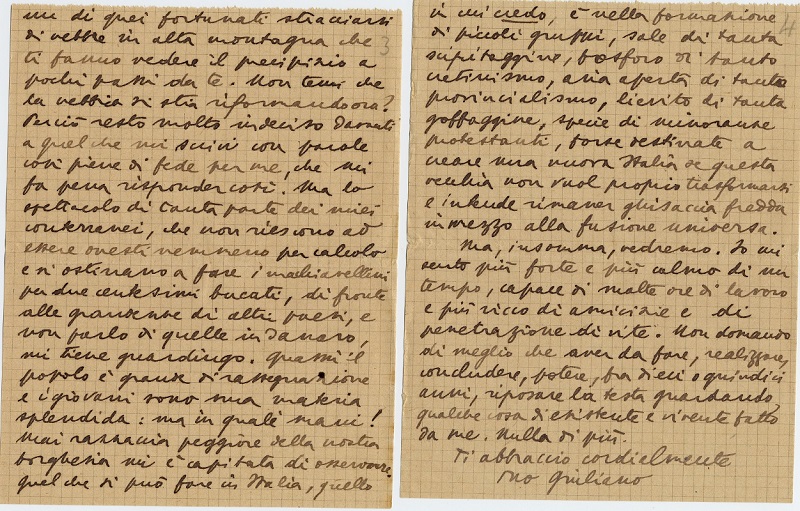 3
un di quei fortunati stracciarsi
di nebbie in alta montagna che
ti fanno vedere il precipizio a
pochi passi da te. Non temi che
la nebbia si stia riformando ora?
Perciò resto molto indeciso davanti
a quel che mi scrivi con parole
così piene di fede per me, che mi
fa pena risponder così. Ma lo
spettacolo di tanta parte dei miei
conterranei, che non riescono ad
essere onesti nemmeno per calcolo
e si ostinano a fare i machiavellini
per due centesimi bucati, di fronte
alle grandezze di altri paesi, e
non parlo di quelle in danaro,
mi tiene guardingo. Quassù il
popolo è grande di rassegnazione
e i giovani sono una materia
splendida: ma in quali mani!
Mai razzaccia peggiore della nostra
borghesia mi è capitata di osservare.
Quel che si può fare in Italia, quello
4
in cui credo, è nella formazione
di piccoli gruppi, sale di tanta
scipitaggine, fosforo di tanto
cretinismo, aria aperta di tanto
provincialismo, lievito di tanta
goffaggine, specie di minoranze
protestanti, forse destinate a
creare una nuova Italia se questa
vecchia non vuol proprio trasformarsi
e intende rimaner ghisaccia fredda
in mezzo alla fusione universa.
Ma, insomma, vedremo. Io mi
sento più forte e più calmo di un
tempo, capace di molte ore di lavoro
e più ricco di amicizie e di
penetrazione di vite. Non domando
di meglio che aver da fare, realizzare,
concludere, potere, fra dieci o quindici
anni, riposare la testa guardando
qualche cosa di esistente e vivente fatto
da me. Nulla di più.
Ti abbraccio cordialmente
tuo Giuliano